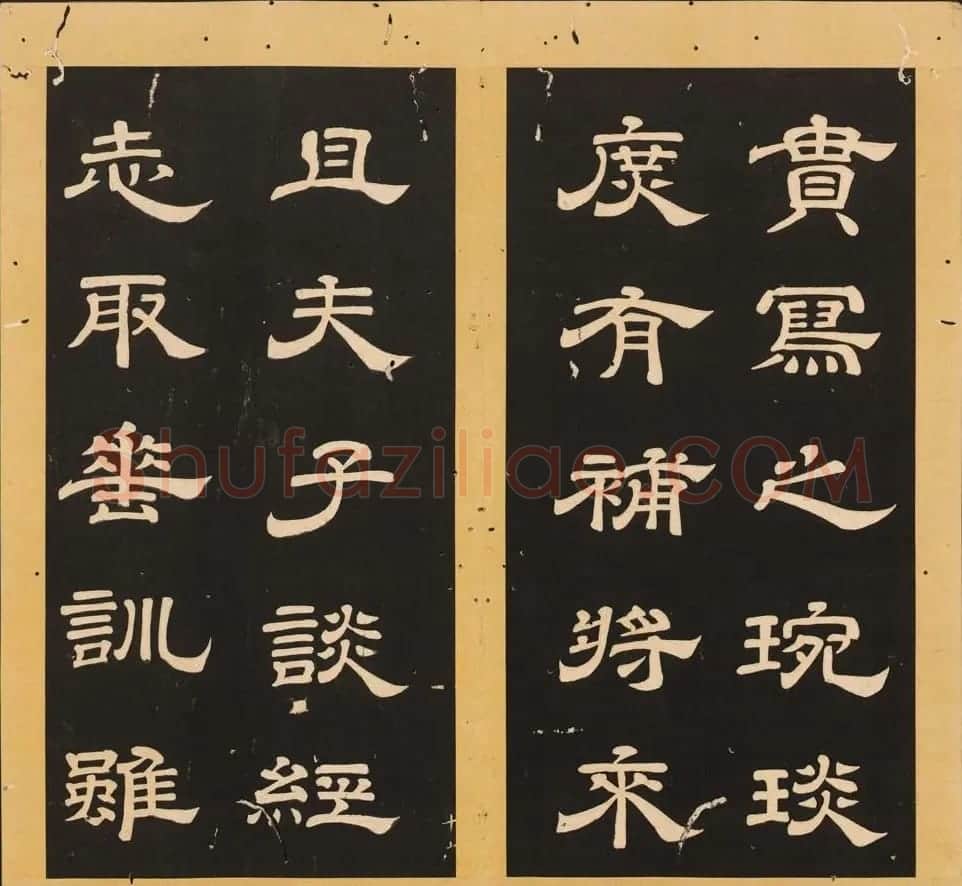 貴寫之琬琰
庶有補將來
且夫子談經
志取垂訓雖
Shufaziliao.COM